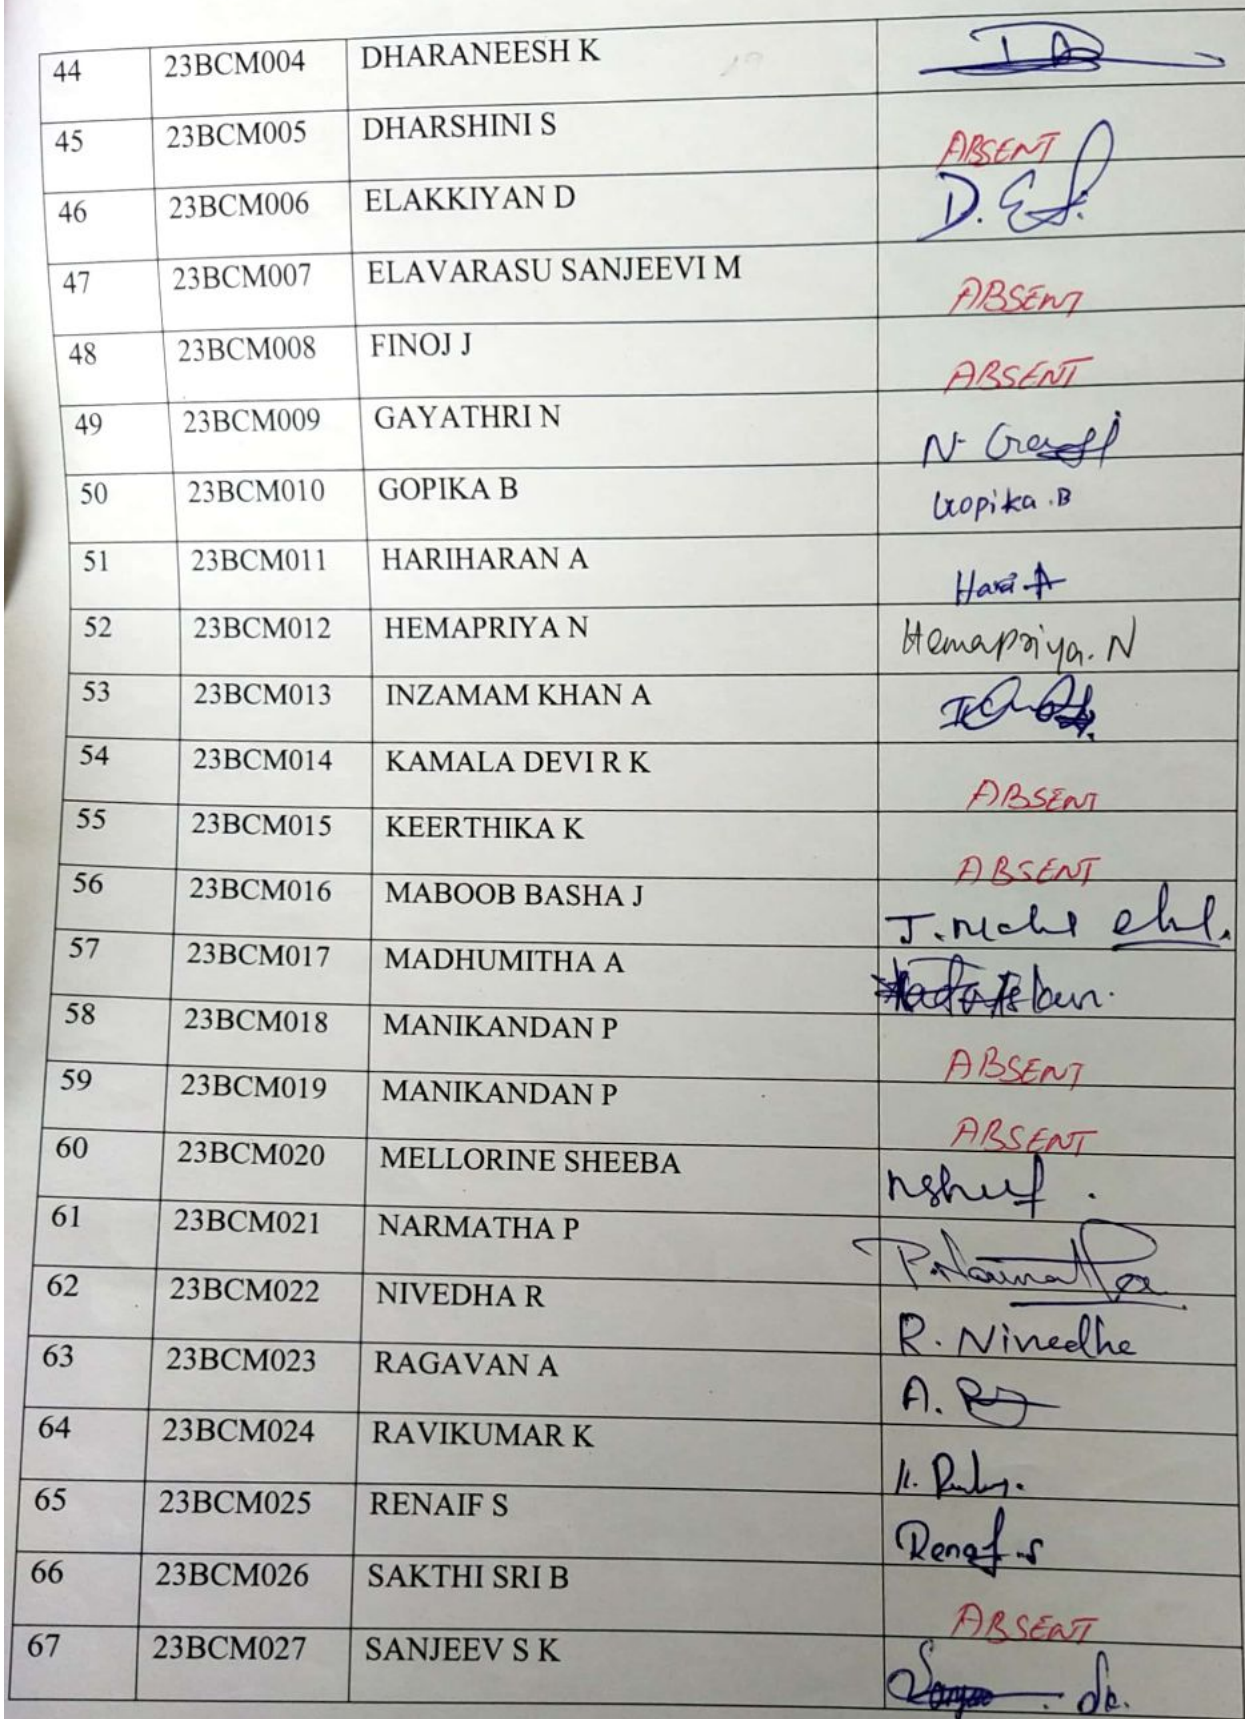 44 23BCM004 DHARANEESH K
45 23BCM005 DHARSHINI S ABSENT
46 23BCM006 ELAKKIYAN D D. E
47 23BCM007 ELAVARASU SANJEEVI M ABSENT
48 23BCM008 FINOJ J ABSENT
49 23BCM009 GAYATHRI N N.
50 23BCM010 GOPIKA B Gopika .B
51 23BCM011 HARIHARAN A Hari A
52 23BCM012 HEMAPRIYA N Hemapriya. N
53 23BCM013 INZAMAM KHAN A
54 23BCM014 KAMALA DEVI R K ABSENT
55 23BCM015 KEERTHIKA K ABSENT
56 23BCM016 MABOOB BASHA J J.
57 23BCM017 MADHUMITHA A
58 23BCM018 MANIKANDAN P ABSENT
59 23BCM019 MANIKANDAN P ABSENT
60 23BCM020 MELLORINE SHEEBA
61 23BCM021 NARMATHA P P. Narmatha
62 23BCM022 NIVEDHA R R. Nivedha
63 23BCM023 RAGAVAN A A.
64 23BCM024 RAVIKUMAR K K.
65 23BCM025 RENAIF S Renaif .S
66 23BCM026 SAKTHI SRI B ABSENT
67 23BCM027 SANJEEV S K